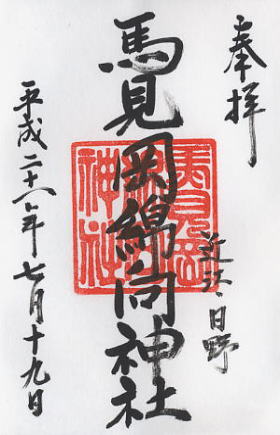 奉拝
近江 日野
馬見岡綿向神社
馬見岡綿向神社
平成二十八年七月十九日